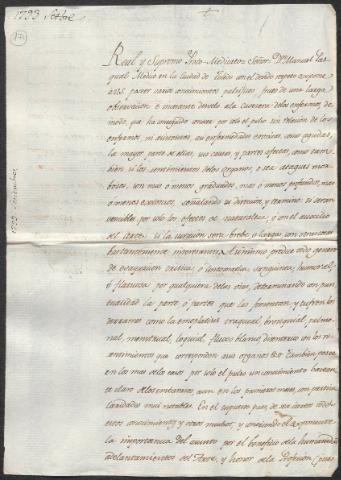 1793 Setbre
121
Real y Supremo Proto-Medicato = Señor: Dn Manuel Pas
qual Medico en la Ciudad de Toledo con el devido respeto expone
posee varios conocimientos pulsificos fruto de una larga
observacion e incesante desvelo a la cavecera de los enfermos de
modo que ha conseguido conocer por solo el pulso sin relacion de los
enfermos, ni asistentes, sus enfermedades cronicas como agudas,
la mayor parte de ellas, sus causas, y partes afectas, como tam
bien si los sentimientos de los organos, o sea ataques mor
bosos, son mas o menos graduados, mas o menos profundos, mas
o menos extensos, señalando su duracion, y termino: si seran
vencibles por solo los efectos de naturaleza, o con el auxilio
del Arte: si la curacion sera breve o larga, con otras cosas
bastantemente interesantes. Asimismo predice todo genero
de evaquacion critica, o sintomatica, sanguinea, humoral,
o flatuosa por qualquiera de las vias, determinando con pun
tualidad la parte o partes que las fomentan, y sufren los
derrames como la emoptisica traqual, bronquial, pulmo
nal, menstrual, loquial, fluxos blancos, disenterico con los re
sentimientos que corresponden a sus organos &a. Tambien posee
en las mas de los casos por solo el pulso un conocimiento bastan
te claro de los embarazos, aun en los primeros meses, con particu
laridades mui notables. En el supuesto pues de ser ciertos todos
estos conocimientos y otros muchos, y conociendo el exponente
la importancia del asunto por el beneficio de la humanidad
adelantamiento del Arte, y honor de la Profesion;
1793 Septiembre